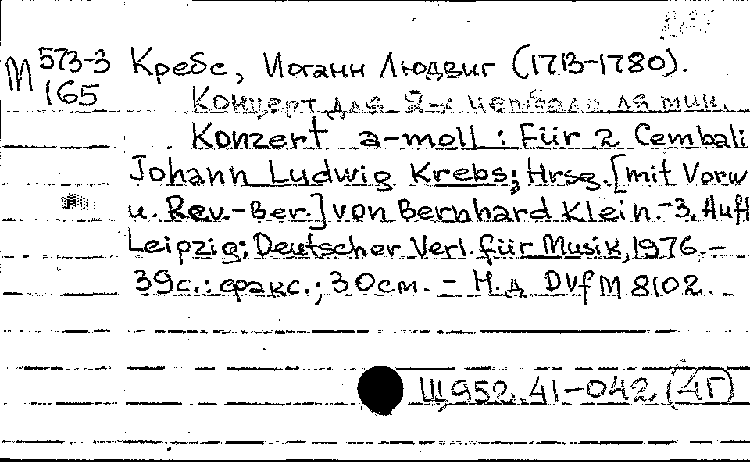 М 573-3
165
Кребс, Иоганн Людвиг (1713-1780).
Концерт для 2-х чембало ля мин.
Konzert a-moll : Für 2 Cembali
Johann Ludwig Krebs; Hrsg. [mit Vorw
u. Rev.-Ber.] von Bernhard Klein.-3. Aufl
Leipzig: Deutscher Verl. für Musik, 1976.-
39с.: факс.; 30см. - Н.д. DVfM 8102.
Щ952.41-042 (4Г)